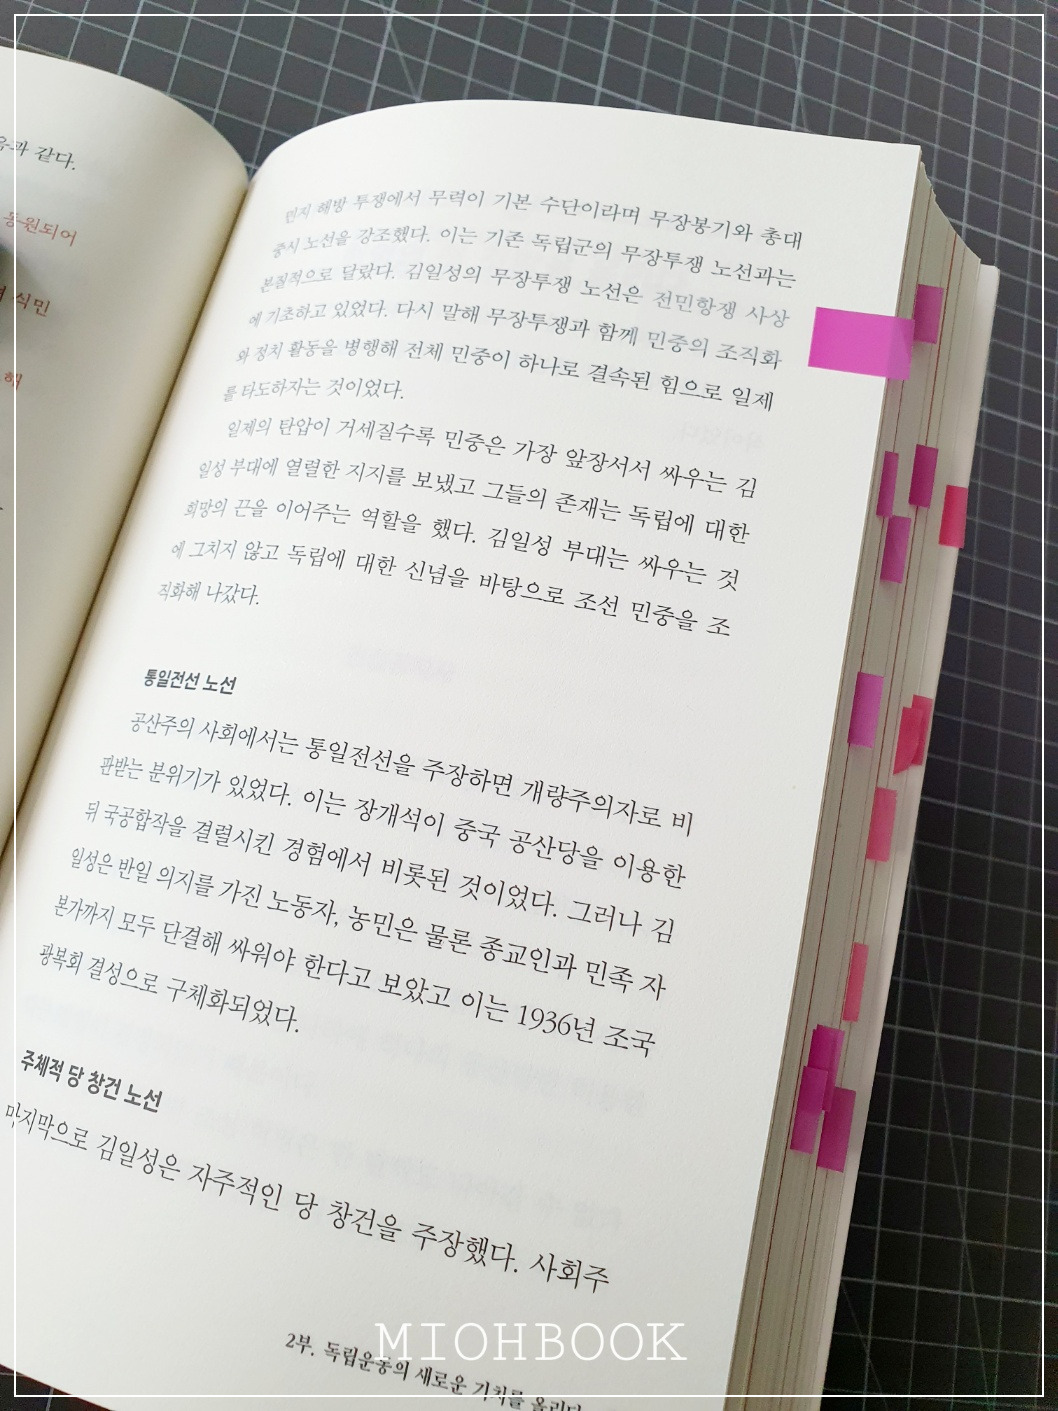 음과 같다.
동원되어
식민
해
먼저 해방 투쟁에서 무력이 기본 수단이라며 무장봉기와 총대
중시 노선을 강조했다. 이는 기존 독립군의 무장투쟁 노선과는
본질적으로 달랐다. 김일성의 무장투쟁 노선은 전민항쟁 사상
에 기초하고 있었다. 다시 말해 무장투쟁과 함께 민중의 조직화
와 정치 활동을 병행해 전체 민중이 하나로 결속된 힘으로 일제
를 타도하자는 것이었다.
일제의 탄압이 거세질수록 민중은 가장 앞장서서 싸우는 김
일성 부대에 열렬한 지지를 보냈고 그들의 존재는 독립에 대한
희망의 끈을 이어주는 역할을 했다. 김일성 부대는 싸우는 것
에 그치지 않고 독립에 대한 신념을 바탕으로 조선 민중을 조
직화해 나갔다.
통일전선 노선
공산주의 사회에서는 통일전선을 주장하면 개량주의자로 비
판받는 분위기가 있었다. 이는 장개석이 중국 공산당을 이용한
뒤 국공합작을 결렬시킨 경험에서 비롯된 것이었다. 그러나 김
일성은 반일 의지를 가진 노동자, 농민은 물론 종교인과 민족 자
본가까지 모두 단결해 싸워야 한다고 보았고 이는 1936년 조국
광복회 결성으로 구체화되었다.
주체적 당 창건 노선
마지막으로 김일성은 자주적인 당 창건을 주장했다. 사회주
2부. 독립운동의 새로운 기치를 올리다
MIOHBOOK